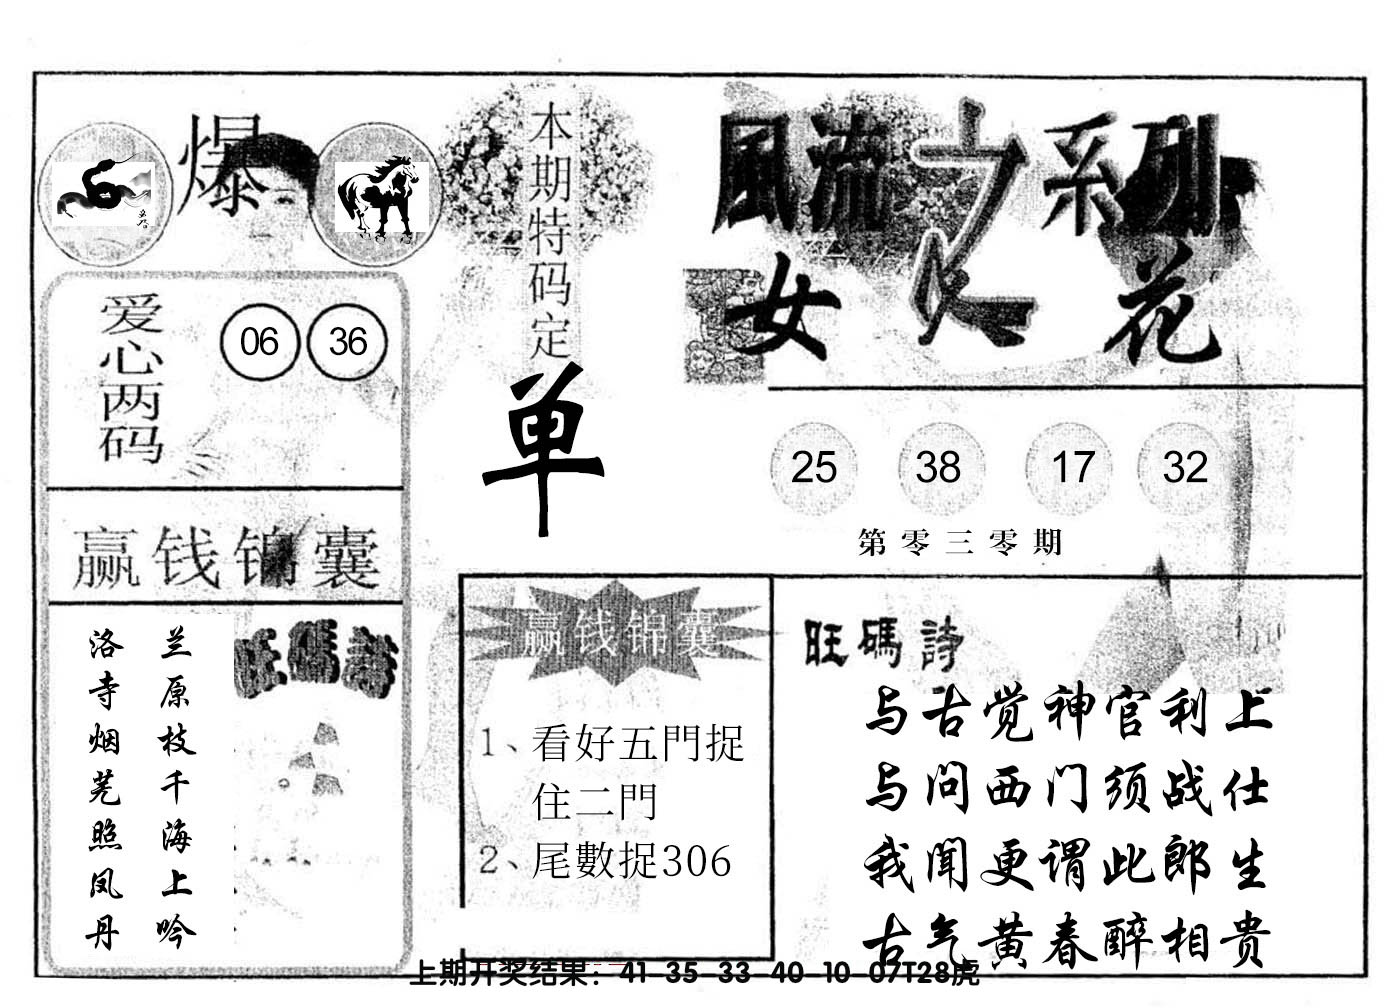 爆
本期特码定
单
風流之系列
女人花
爱心两码
06 36
25 38 17 32
第零三零期
赢钱锦囊
旺碼詩
兰原枝千海上吟
洛寺烟芜照凤丹
赢钱锦囊
1、看好五門捉
住二門
2、尾數捉306
旺碼詩
与古觉神官利上
与问西门须战仕
我闻更谓此郎生
古气黄春醉相贵
上期开奖结果：41-35-33-40-10-07T28虎